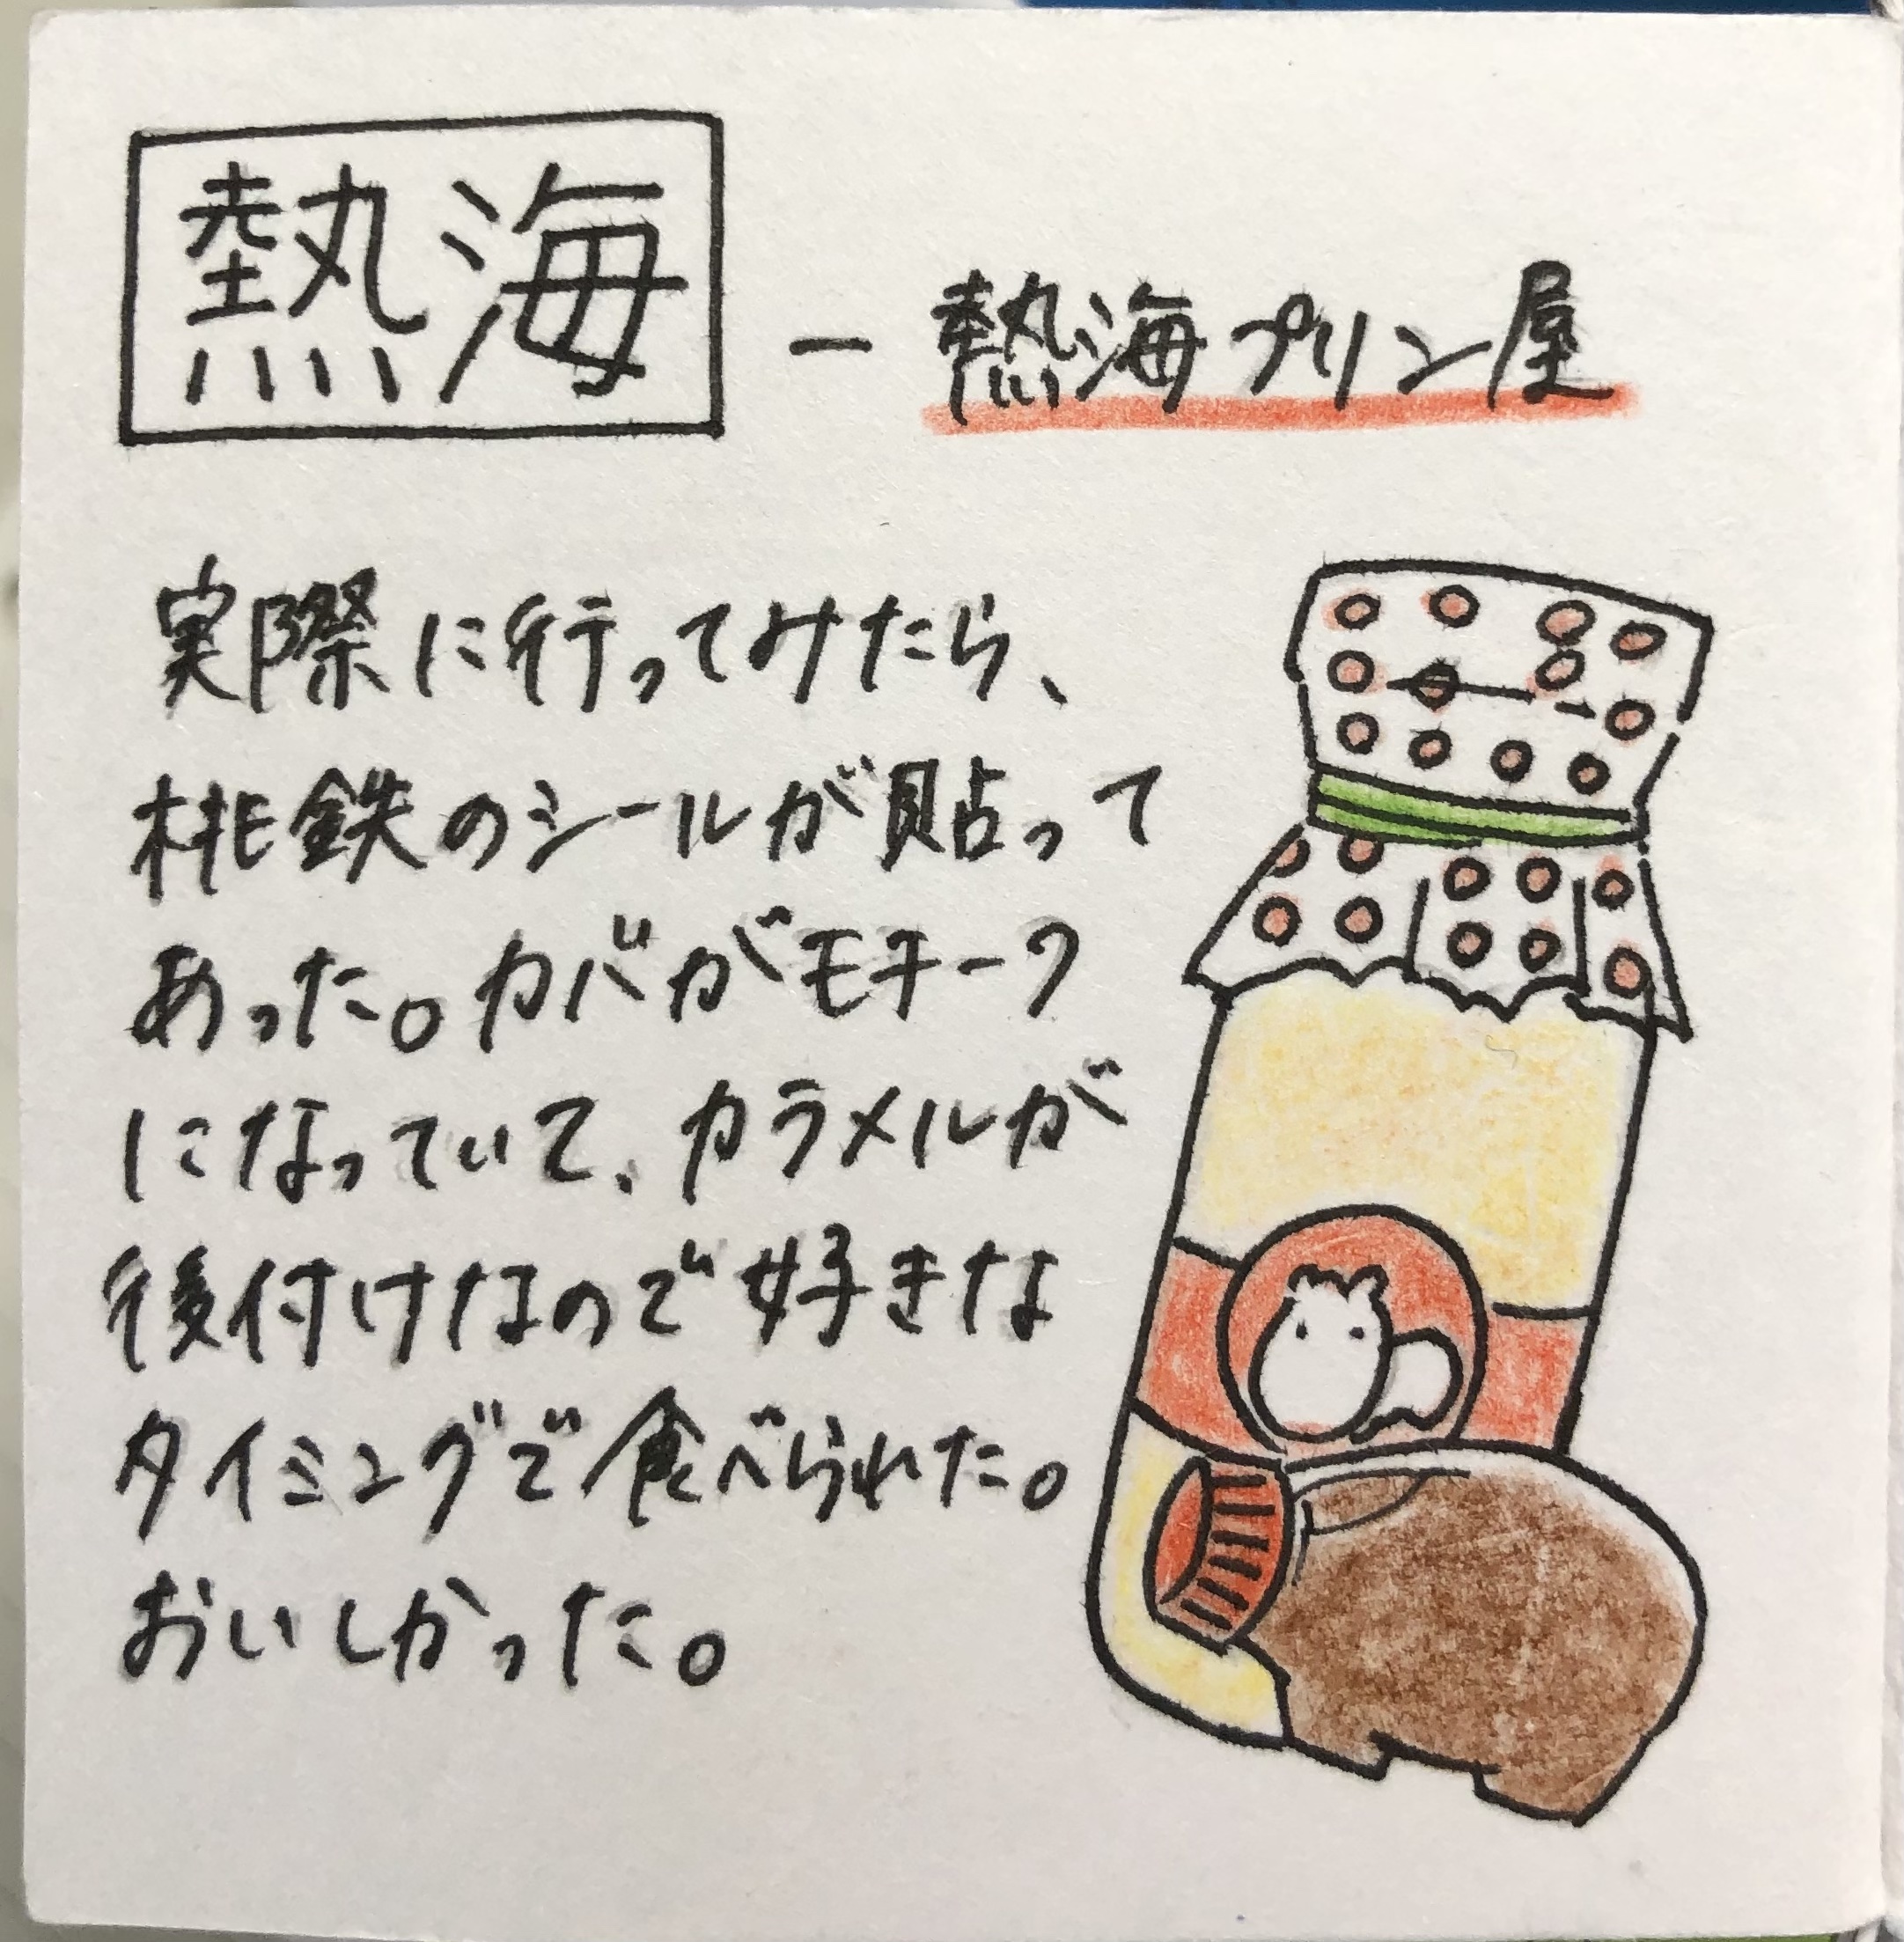 熱海
－熱海プリン屋
実際に行ってみたら、
桃鉄のシールが貼って
あった。カバがモチーフ
になっていて、カラメルが
後付けなので好きな
タイミングで食べられた。
おいしかった。